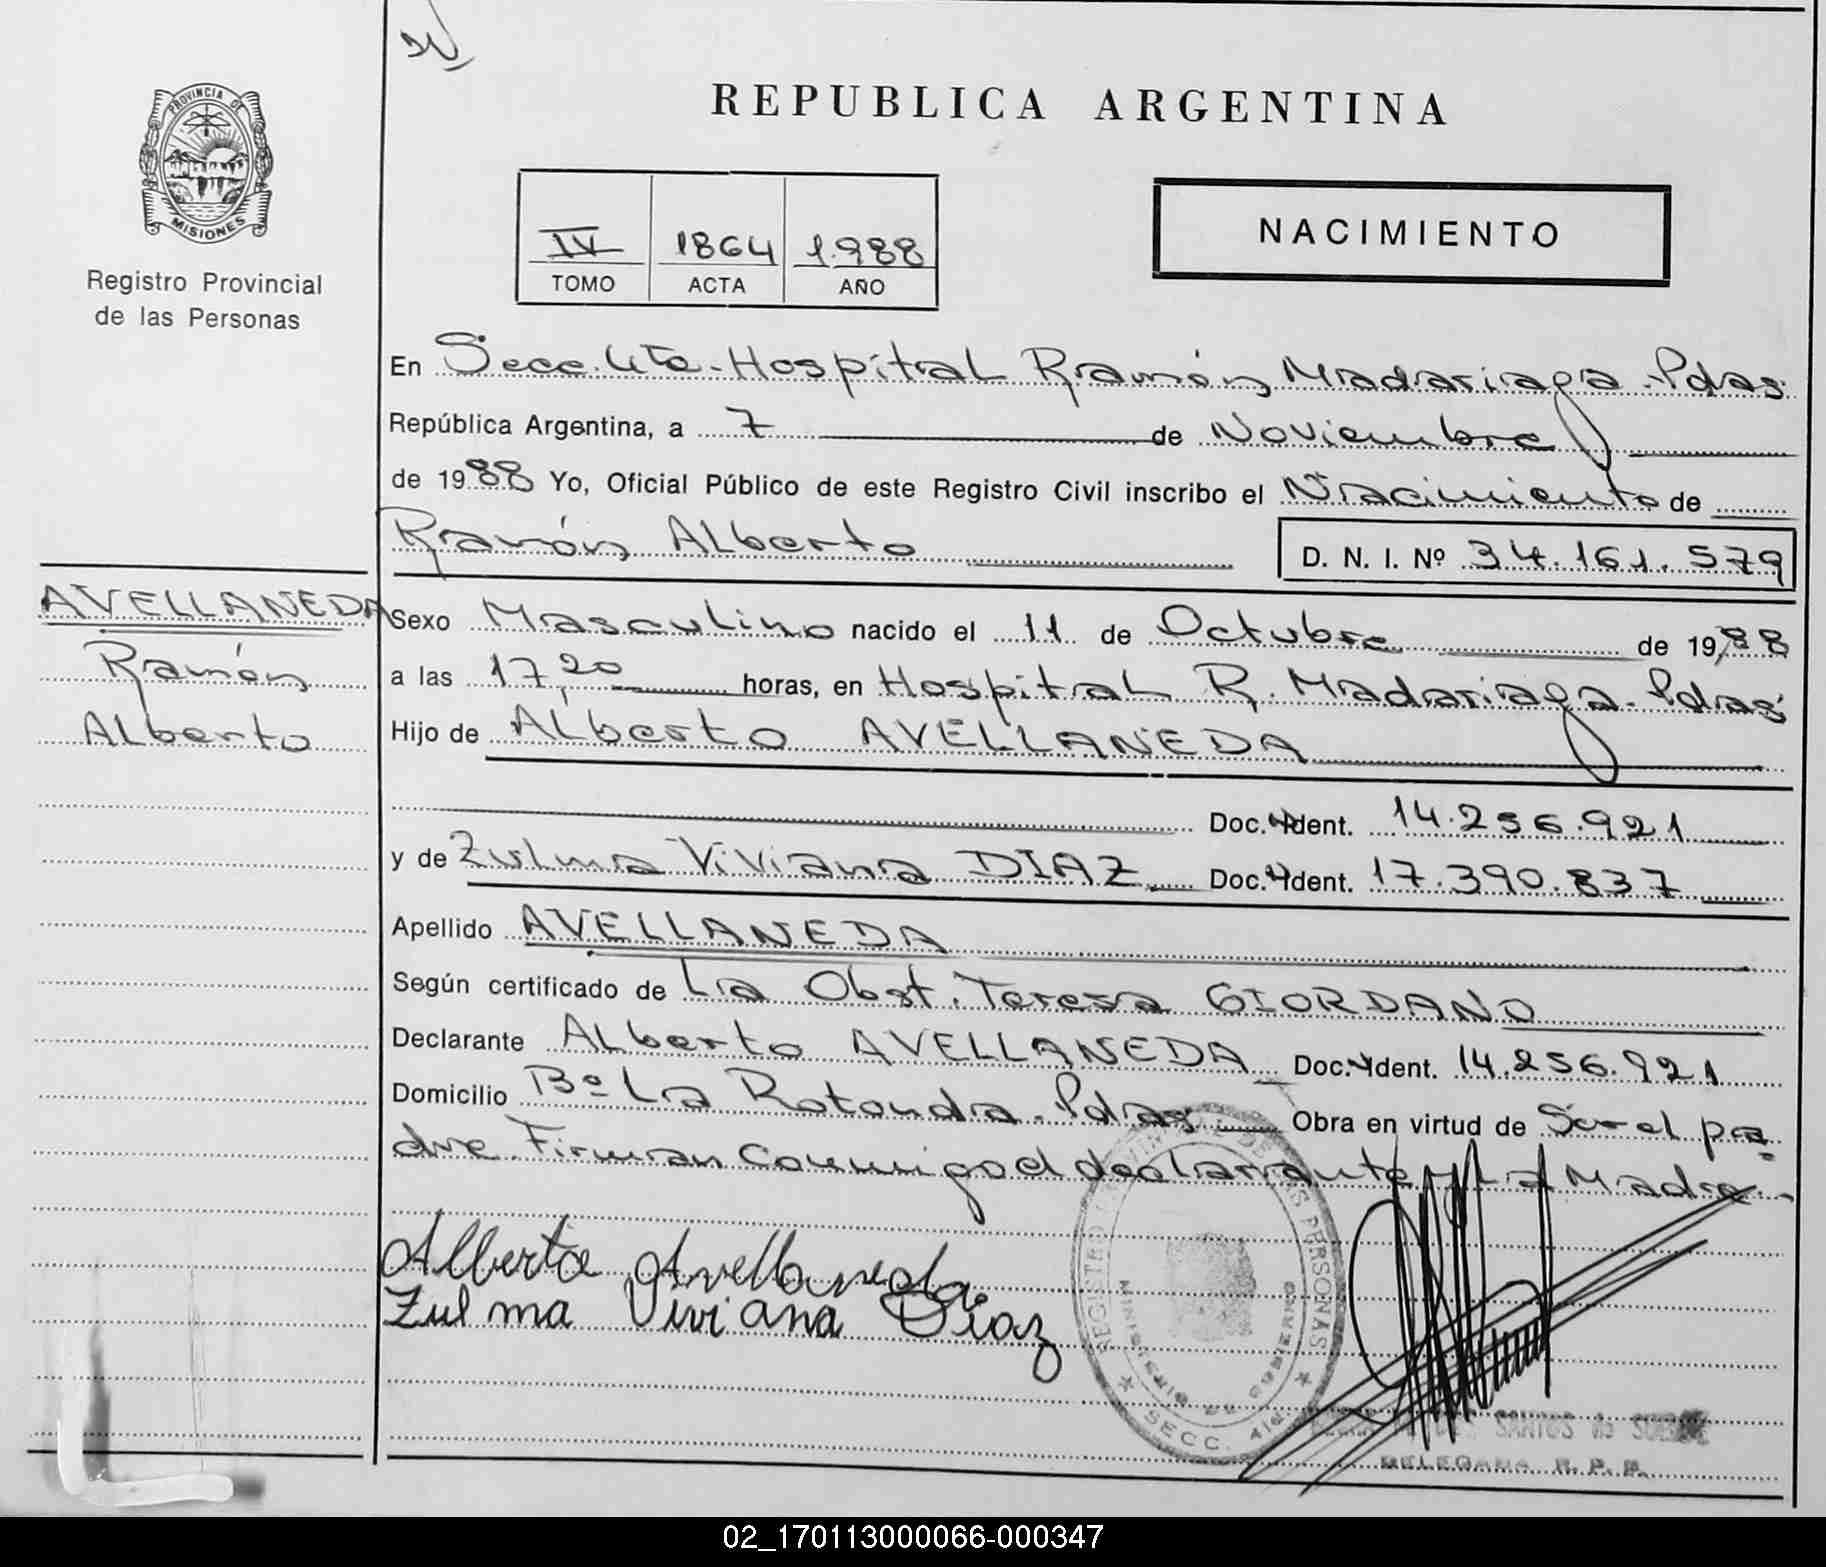 PROVINCIA DE
MISIONES
Registro Provincial
de las Personas
REPUBLICA ARGENTINA
IV 1864 1.988
TOMO ACTA AÑO
NACIMIENTO
En Secc. 4ta. Hospital Ramón Madariaga. Pdas.
República Argentina, a 7 de Noviembre
de 1988 Yo, Oficial Público de este Registro Civil inscribo el Nacimiento de
Ramón Alberto D. N. I. Nº 34.161.579
AVELLANEDA
Ramón
Alberto
Sexo Masculino nacido el 11 de Octubre de 1988
a las 17,20 horas, en Hospital R. Madariaga. Pdas
Hijo de Alberto AVELLANEDA
Doc. Ident. 14.256.921
y de Zulma Viviana DIAZ Doc. Ident. 17.390.837
Apellido AVELLANEDA
Según certificado de La Obst. Teresa GIORDANO
Declarante Alberto AVELLANEDA Doc. Ident. 14.256.921
Domicilio Bº La Rotonda. Pdas Obra en virtud de Ser el pa
dre. Firman Conmigo el declarante y La Madre
Alberto Avellaneda
Zulma Viviana Diaz
REGISTRO PROVINCIAL DE LAS PERSONAS
MINISTERIO DE GOBIERNO
SECC. 4ta
SANTOS de
DELEGADA R. P. P.
02_170113000066-000347